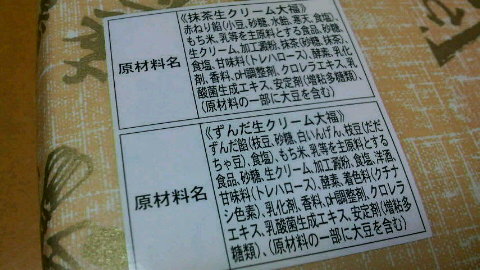 原材料名
《抹茶生クリーム大福》
赤ねり餡(小豆、砂糖、水飴、寒天、食塩)、
もち米、乳等を主原料とする食品、砂糖、
生クリーム、加工澱粉、抹茶(砂糖、抹茶)、
食塩、甘味料(トレハロース)、酵素、乳化
剤、香料、pH調整剤、クロレラエキス、乳
酸菌生成エキス、安定剤(増粘多糖類)、
(原材料の一部に大豆を含む)
原材料名
《ずんだ生クリーム大福》
ずんだ餡(枝豆、砂糖、白いんげん、枝豆(だだ
ちゃ豆)、食塩)、もち米、乳等を主原料とする
食品、砂糖、生クリーム、加工澱粉、食塩、洋酒、
甘味料(トレハロース)、酵素、着色料(クチナ
シ色素)、乳化剤、香料、pH調整剤、クロレラ
エキス、乳酸菌生成エキス、安定剤(増粘多
糖類)、(原材料の一部に大豆を含む)